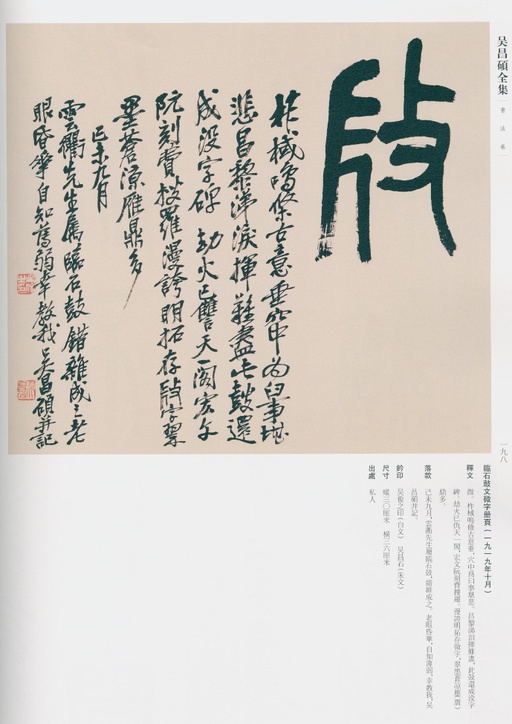 吴昌碩全集
書法卷
柞棫鳴條古意垂穴中為臼事堪
悲昌黎涕淚揮難盡此鼓還
成没字碑 劫火已讎天一閣宏文
阮刻費搜羅漫誇明拓存字翠
墨蒼凉雁鼎多
己未九月
雲衢先生屬臨石鼓錯雜成之老
眼昏華自知弱幸教我吴昌碩并記
一九八
臨石鼓文微字册頁（一九一九年十月）
釋文 微。柞棫鳴條古意垂，穴中爲臼事堪悲。昌黎涕淚揮難盡，此鼓還成没字
碑。劫火已仇天一閣，宏文阮刻費搜羅。漫誇明拓存微字，翠墨蒼凉雁（贋）
鼎多。
落款 己未九月，雲衢先生屬臨石鼓，錯雜成之。老眼昏華，自知薄弱，幸教我。吴
昌碩并記。
鈐印 吴俊之印（白文） 吴昌石（朱文）
尺寸 縱三〇厘米 横三六厘米
出處 私人